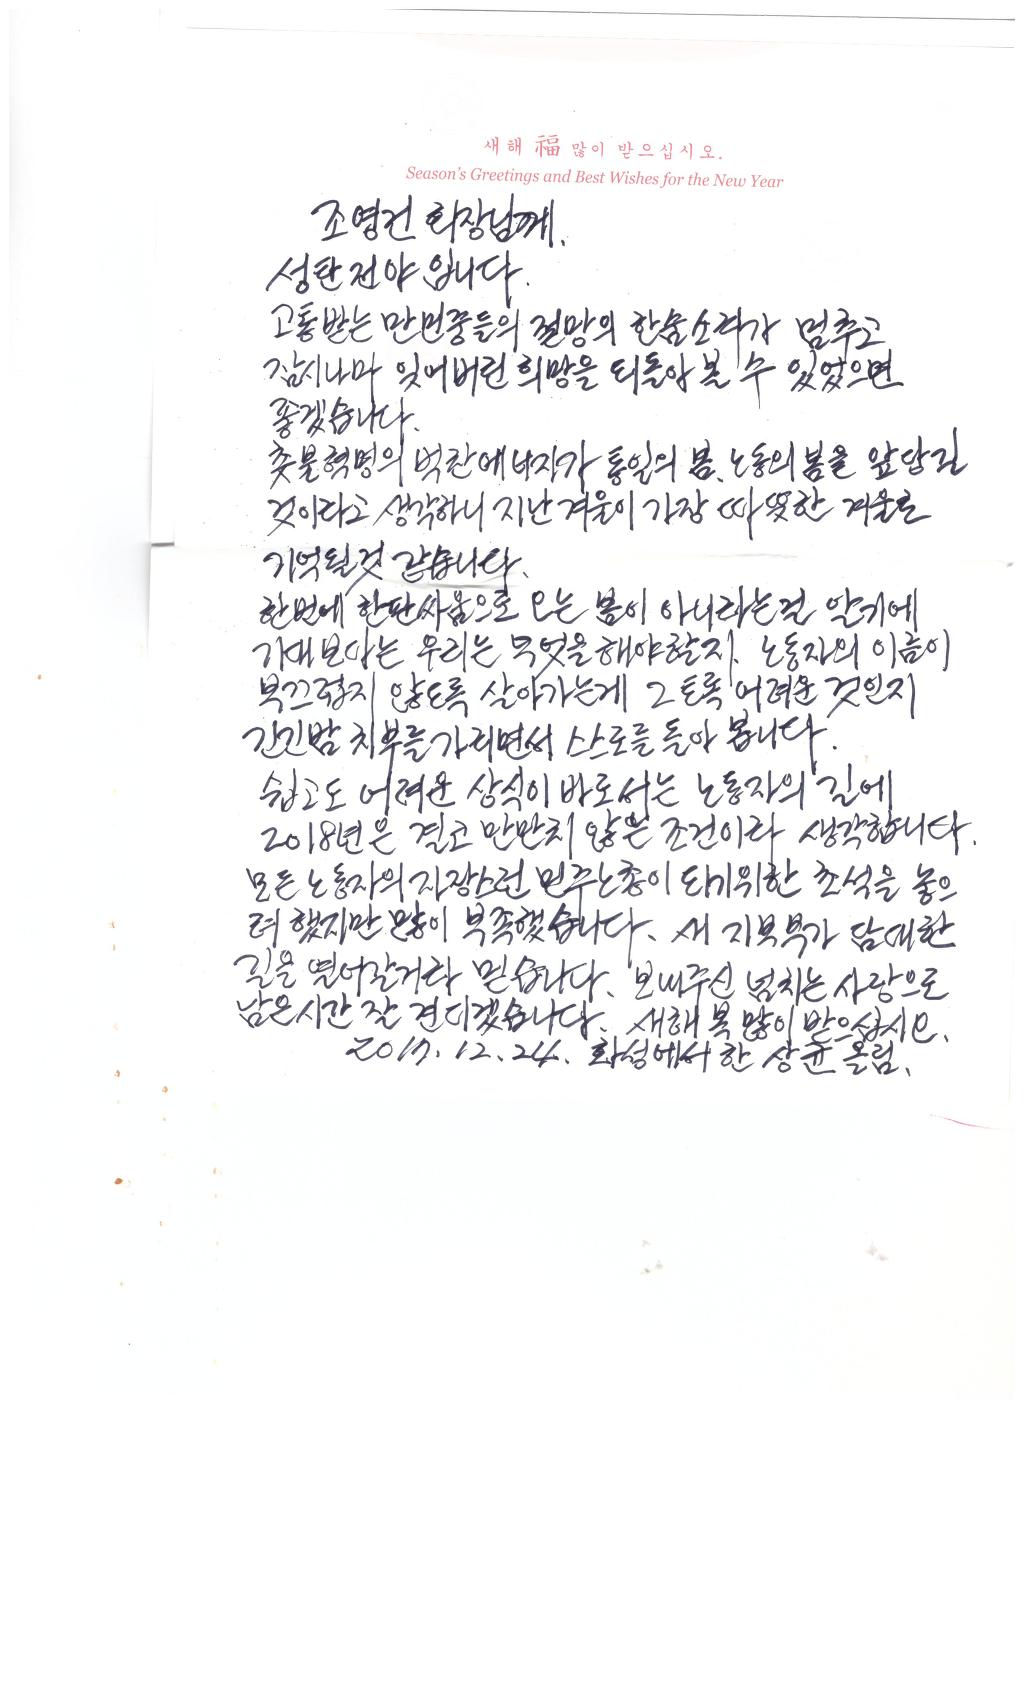 새해 福 많이 받으십시오.
Season's Greetings and Best Wishes for the New Year
조영건 회장님께.
성탄전야 입니다.
고통받는 만민중들의 절망의 한숨소리가 멈추고
잠시나마 잊어버린 희망을 되돌아 볼 수 있었으면
좋겠습니다.
촛불혁명의 벅찬에너지가 통일의 봄, 노동의 봄을 앞당길
것이라고 생각하니 지난겨울이 가장 따뜻한 겨울로
기억될것 같습니다.
한번에 한판싸움으로 오는 봄이 아니라는걸 알기에
기대보다는 우리는 무엇을해야할지, 노동자의 이름이
부끄럽지 않도록 살아가는게 그토록 어려운 것인지
긴긴밤 치부를가리면서 스스로를 돌아 봅니다.
쉽고도 어려운 상식이 바로서는 노동자의 길에
2018년은 결코 만만치 않은 조건이라 생각합니다.
모든노동자의 자랑스런 민주노총이 되기위한 초석을 놓으
려 했지만 많이 부족했습니다. 새 지도부가 담대한
길을 열어갈거라 믿습니다. 보내주신 넘치는 사랑으로
남은시간 잘 견디겠습니다. 새해 복 많이 받으십시오.
2017. 12. 24. 화성에서 한 상균 올림.